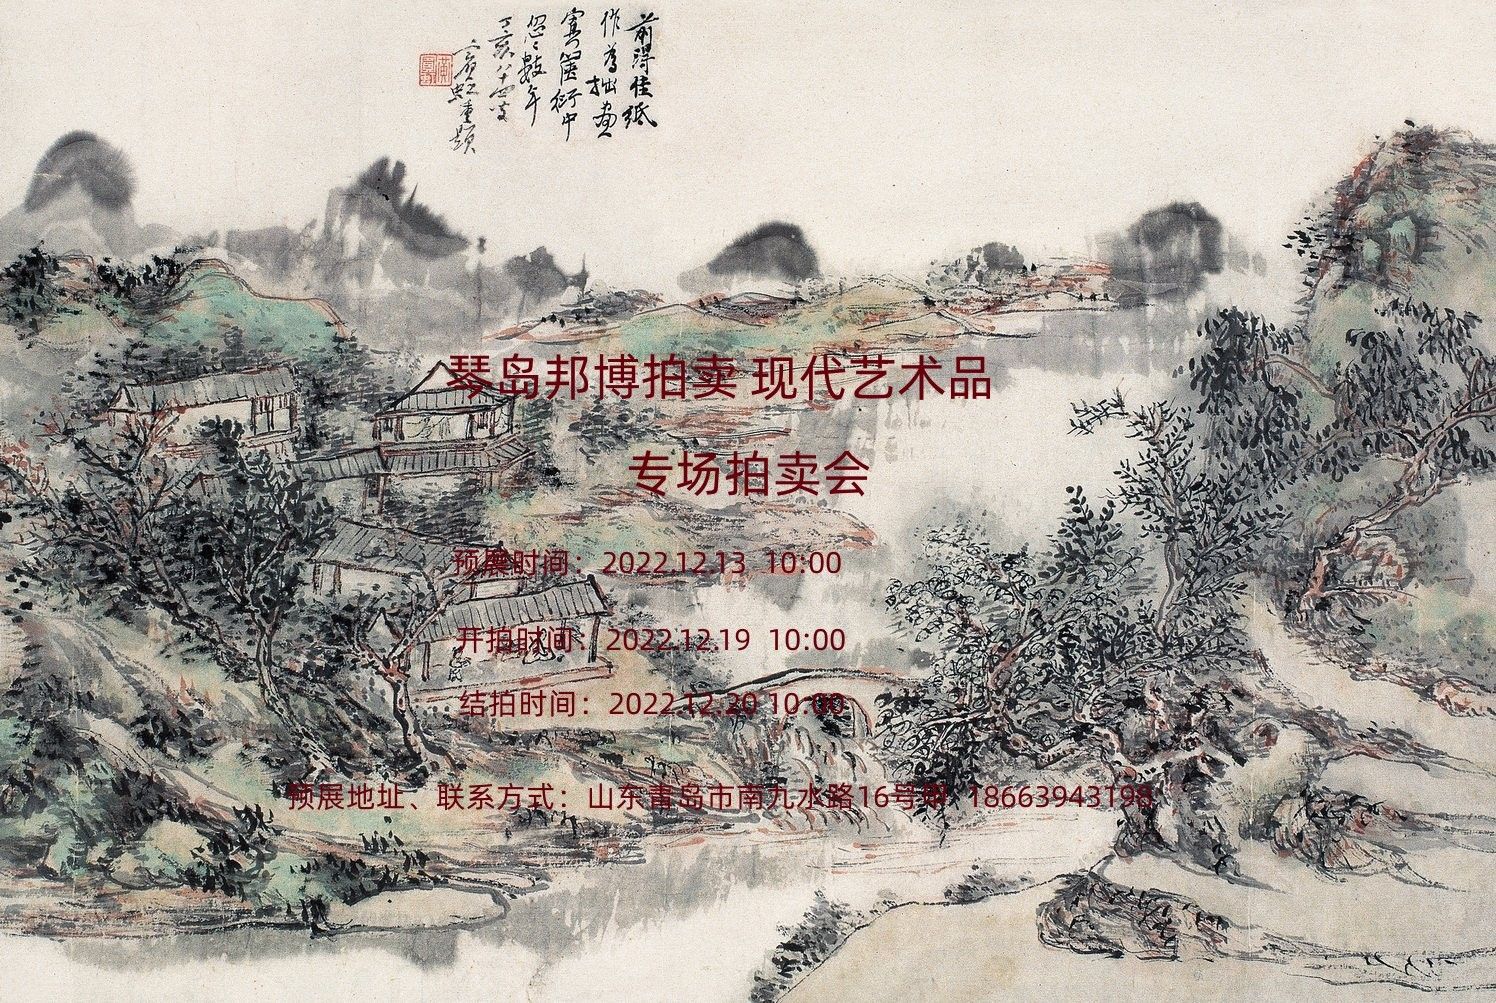 前得佳紙
作為拙画
寘箧衍中
忽忽數年
丁亥八十四叟
賓虹重題
琴岛邦博拍卖 现代艺术品
专场拍卖会
预展时间：2022.12.13 10:00
开拍时间：2022.12.19 10:00
结拍时间：2022.12.20 10:00
预展地址、联系方式：山东青岛市南九水路16号甲 18663943198